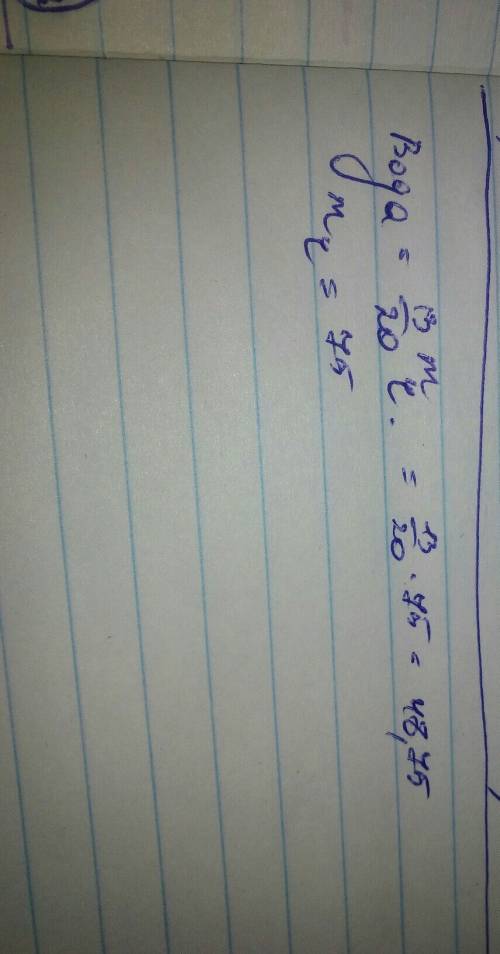 Вода = 13/20 mч. = 13/20 · 75 = 48,75
mч = 75